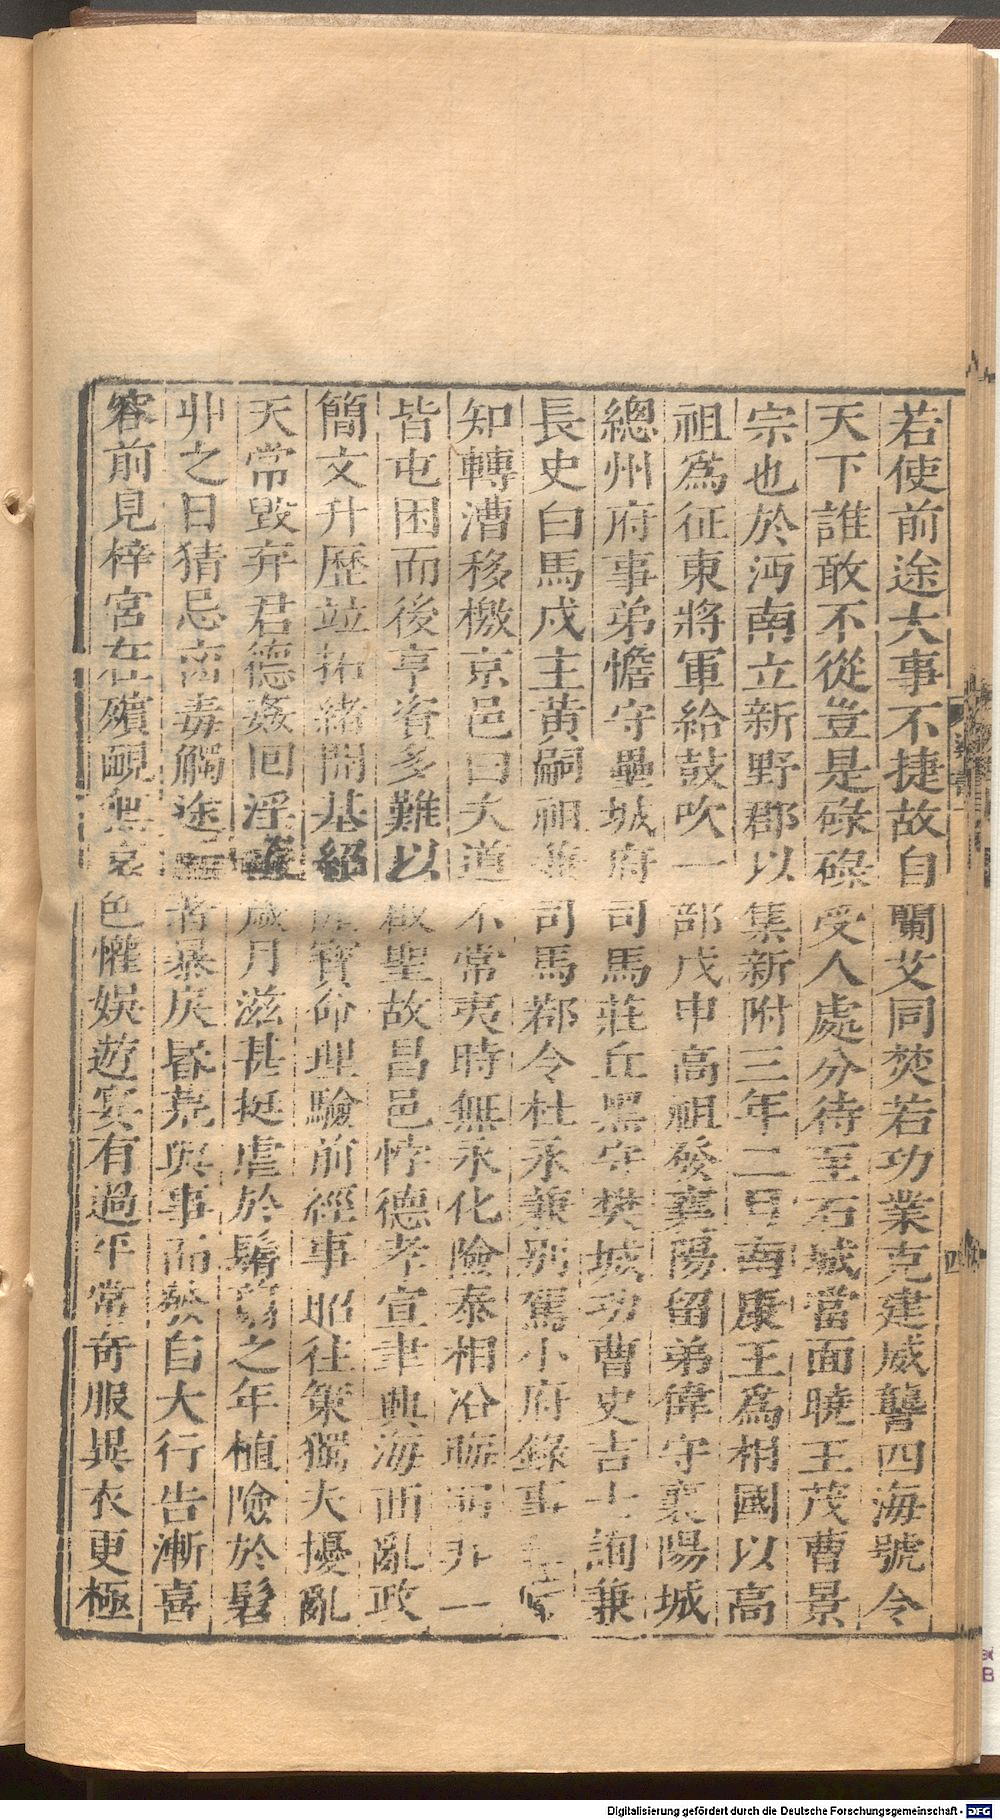 若使前途大事不捷故自蘭艾同焚若功業克建威讋四海號令
天下誰敢不從豈是碌碌受人處分待至石城當面曉王茂曹景
宗也於沔南立新野郡以集新附三年二月南康王爲相國以高
祖爲征東將軍給鼓吹一部戊申高祖發襄陽留弟偉守襄陽城
總州府事弟憺守壘城府司馬莊丘黑守樊城功曹史吉士詢兼
長史白馬戍主黃嗣祖兼司馬鄀令杜永兼別駕小府錄事
知轉漕移檄京邑曰夫道不常夷時無永化險泰相沿晦明非一
皆屯困而後亨資多難以啟聖故昌邑悖德孝宣聿興海西亂政
簡文升歷並拓緒開基紹隆寶命理驗前經事昭往策獨夫擾亂
天常毀弃君德姦回淫縱歲月滋甚挺虐於䰂剪之年植險於髫
丱之日猜忌凶毒觸途而著暴戾昏荒與事而發自大行告漸喜
容前見梓宮在殯靦無哀色懽娛遊宴有過平常奇服異衣更極
梁書
四
Digitalisierung gefördert durch die Deutsche Forschungsgemeinschaft - DFG